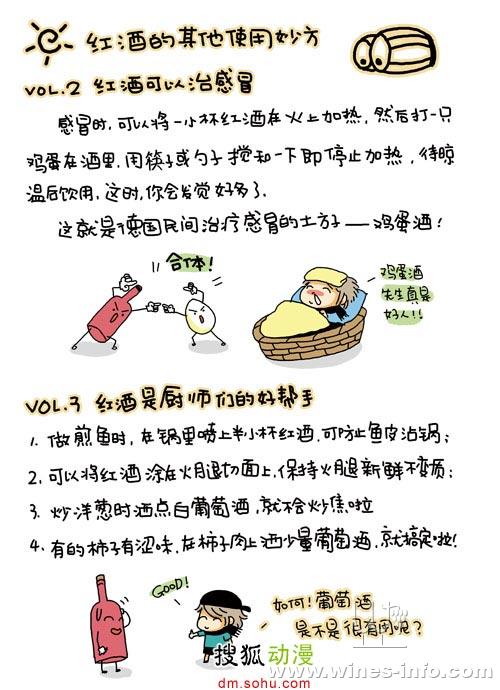 红酒的其他使用妙方
VOL.2 红酒可以治感冒
感冒时,可以将一小杯红酒在火上加热,然后打一只
鸡蛋在酒里,用筷子或勺子搅和一下即停止加热,待晾
温后饮用,这时,你会发觉好多了.
这就是德国民间治疗感冒的土方子——鸡蛋酒!
合体!
鸡蛋酒
先生真是
好人!!
VOL.3 红酒是厨师们的好帮手
1. 做煎鱼时,在锅里喷上半小杯红酒,可防止鱼皮沾锅;
2. 可以将红酒涂在火腿切面上,保持火腿新鲜不变质;
3. 炒洋葱时洒点白葡萄酒,就不会炒焦啦
4. 有的柿子有涩味,在柿子肉上洒少量葡萄酒,就搞定啦!
GOOD!
如何!葡萄酒
是不是很有用呢?
搜狐动漫
dm.sohu.com
www.wines-info.com